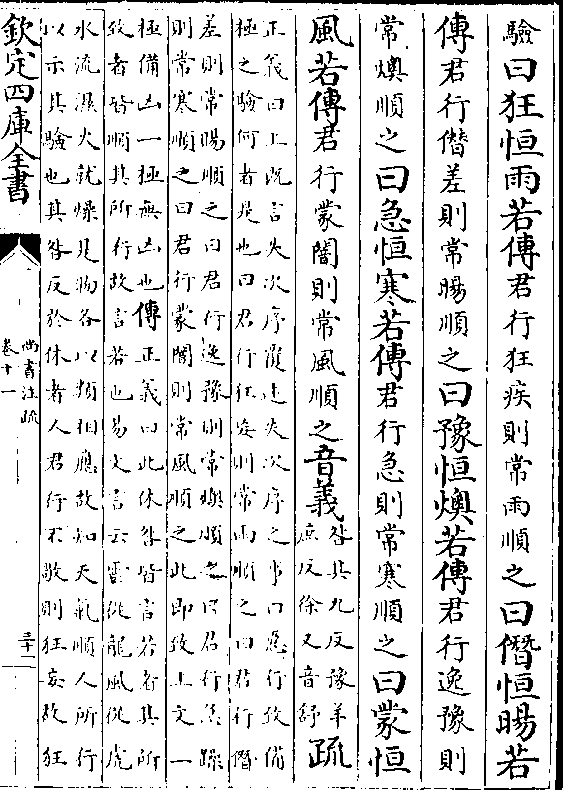 驗曰狂恒雨若傳君行狂疾則常雨順之曰僭恒暘若
傳君行僭差則常暘順之曰豫恒燠若傳君行逸豫則
常燠順之曰急恒寒若傳君行急則常寒順之曰蒙恒
風若傳君行蒙闇則常風順之音義咎其九反豫羊
庶反徐又音舒疏
正義曰上既言失次序覆述失次序之事曰惡行致備
極之驗何者是也曰君行狂妄則常雨順之曰君行僭
差則常暘順之曰君行逸豫則常燠順之曰君行急躁
則常寒順之曰君行蒙闇則常風順之此即致上文一
極備凶一極無凶也傳正義曰此休咎皆言若者其所
致者皆順其所行故言若也易文言云雲從龍風從虎
水流濕火就燥是物各以類相應故知天氣順人所行
以示其驗也其咎反於休者人君行不敬則狂妄故狂
欽定四庫全書
尚書注疏
卷十一
三十一